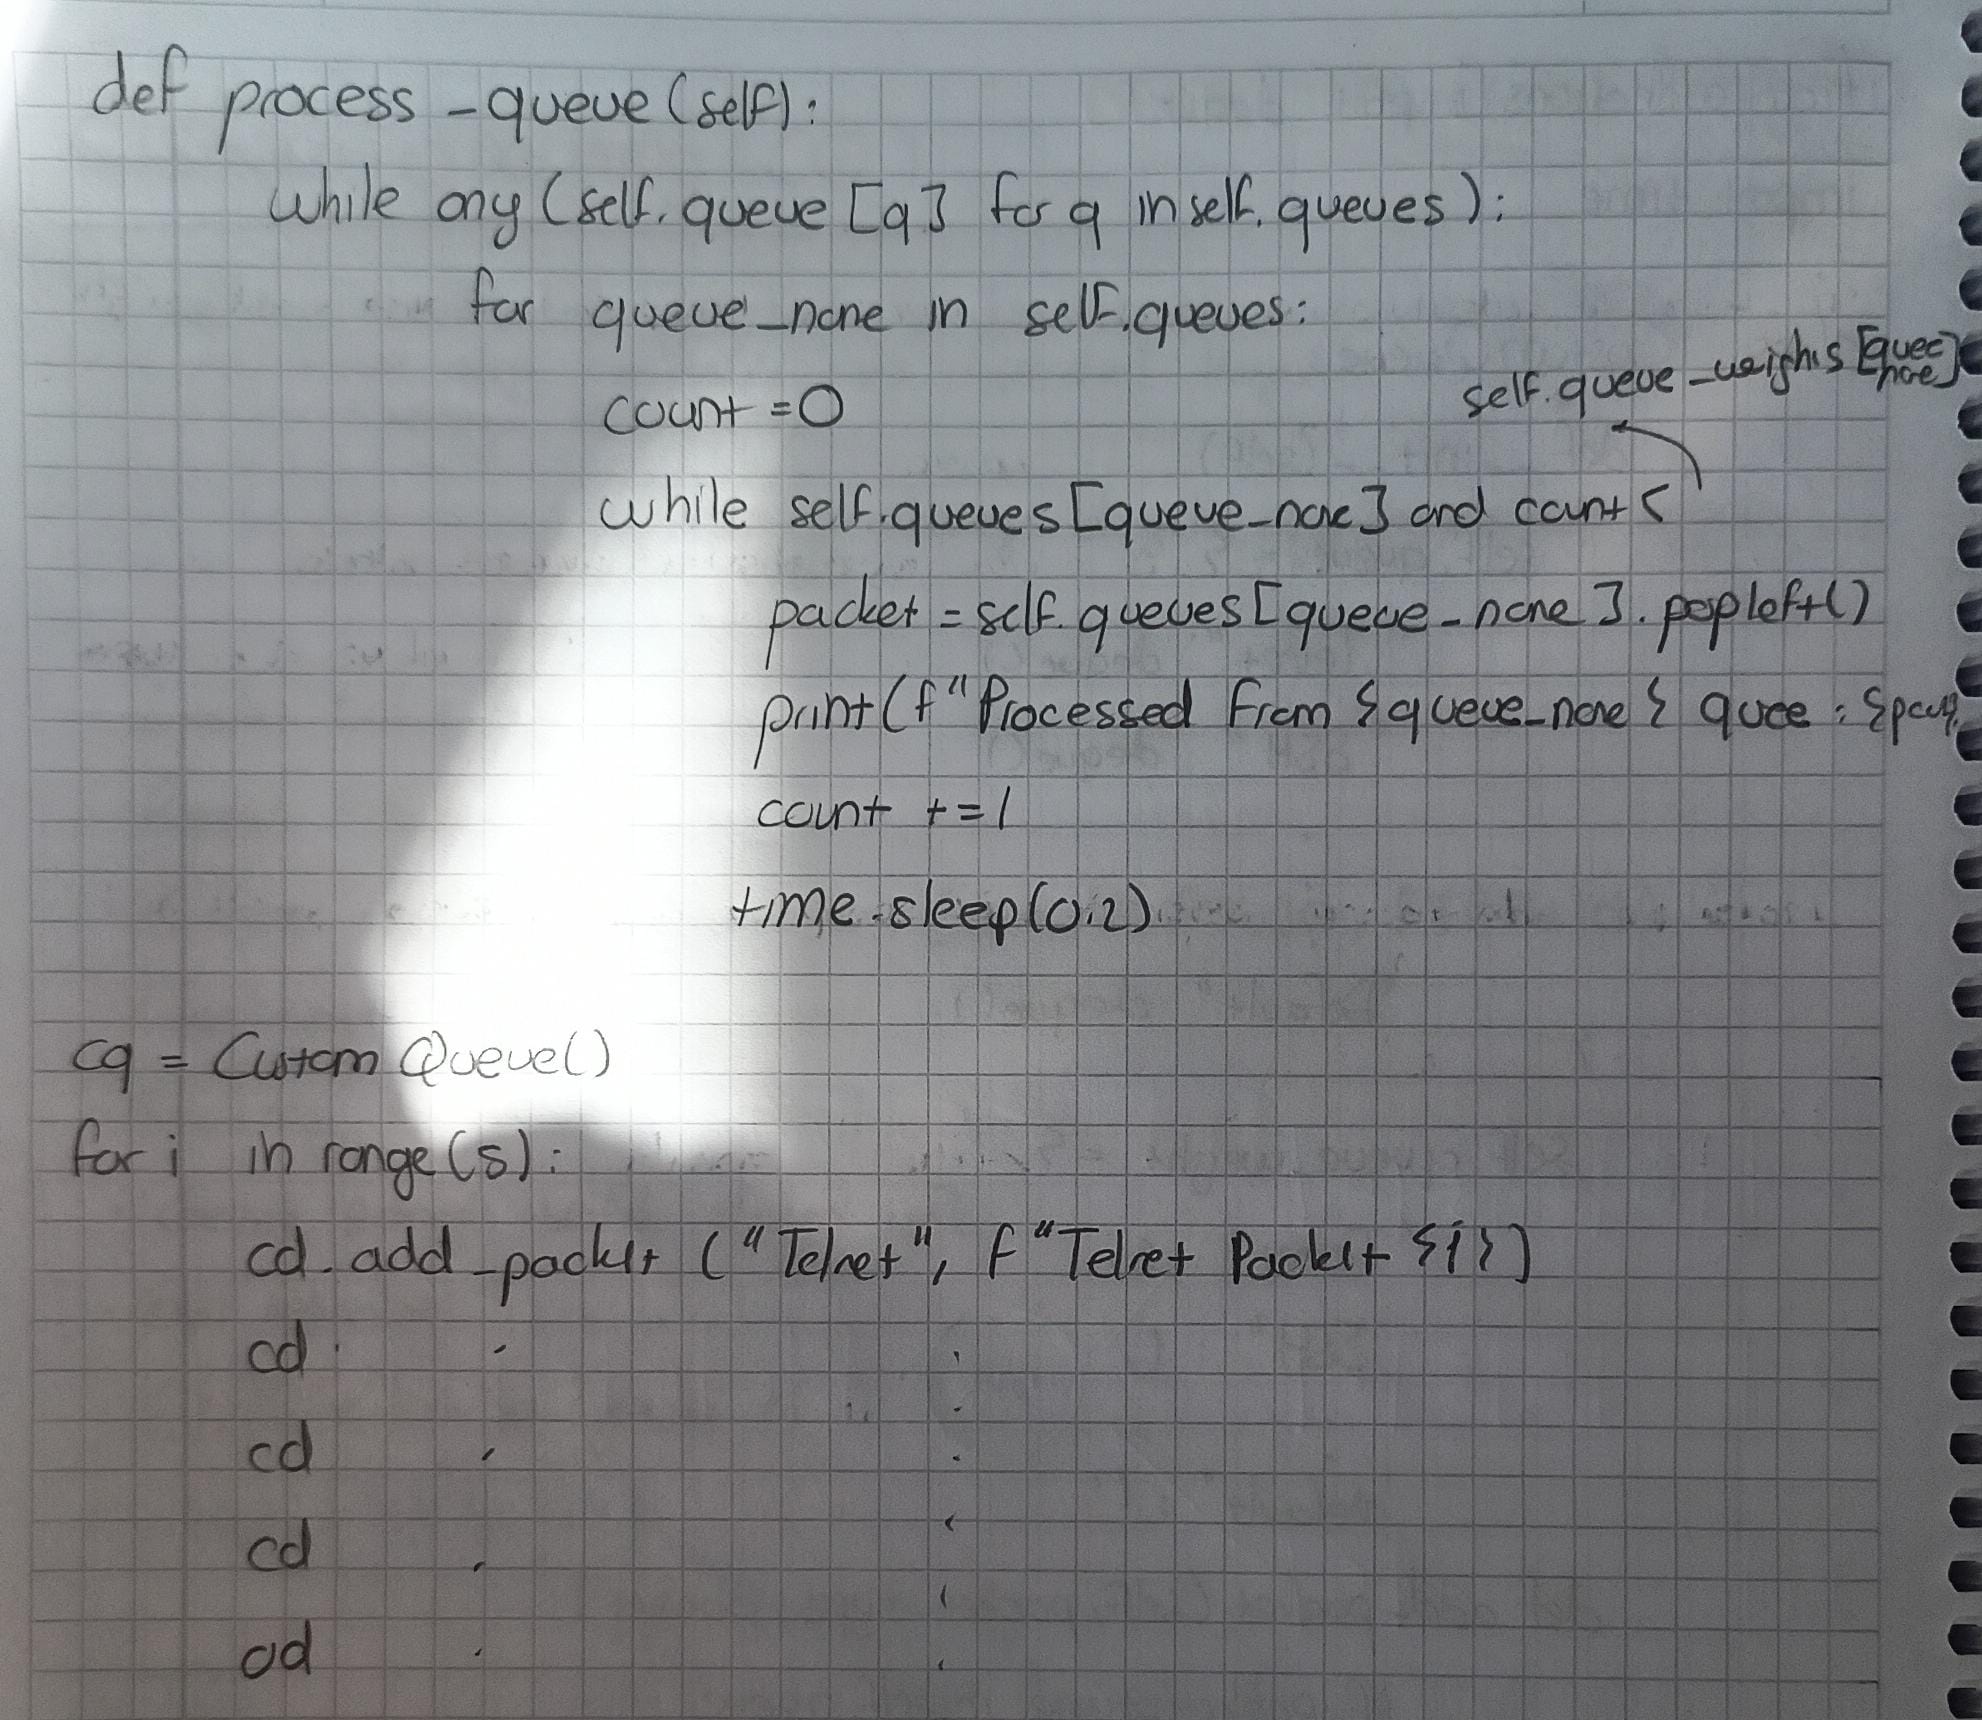 def process_queue(self):
while any(self.queue[q] for q in self.queues):
for queue_name in self.queues:
count=0
self.queue_weighs[quee
while self.queues[queue_name] and count<
packet=self.queues[queue_name].popleft()
print(f"Processed from {queue_name} quee: {
count +=1
time.sleep(0.2)
cq = Custom Queue()
for i in range(5):
cd.add_packet ("Telnet", f"Telnet Packet {i})
cd
cd
cd
cd